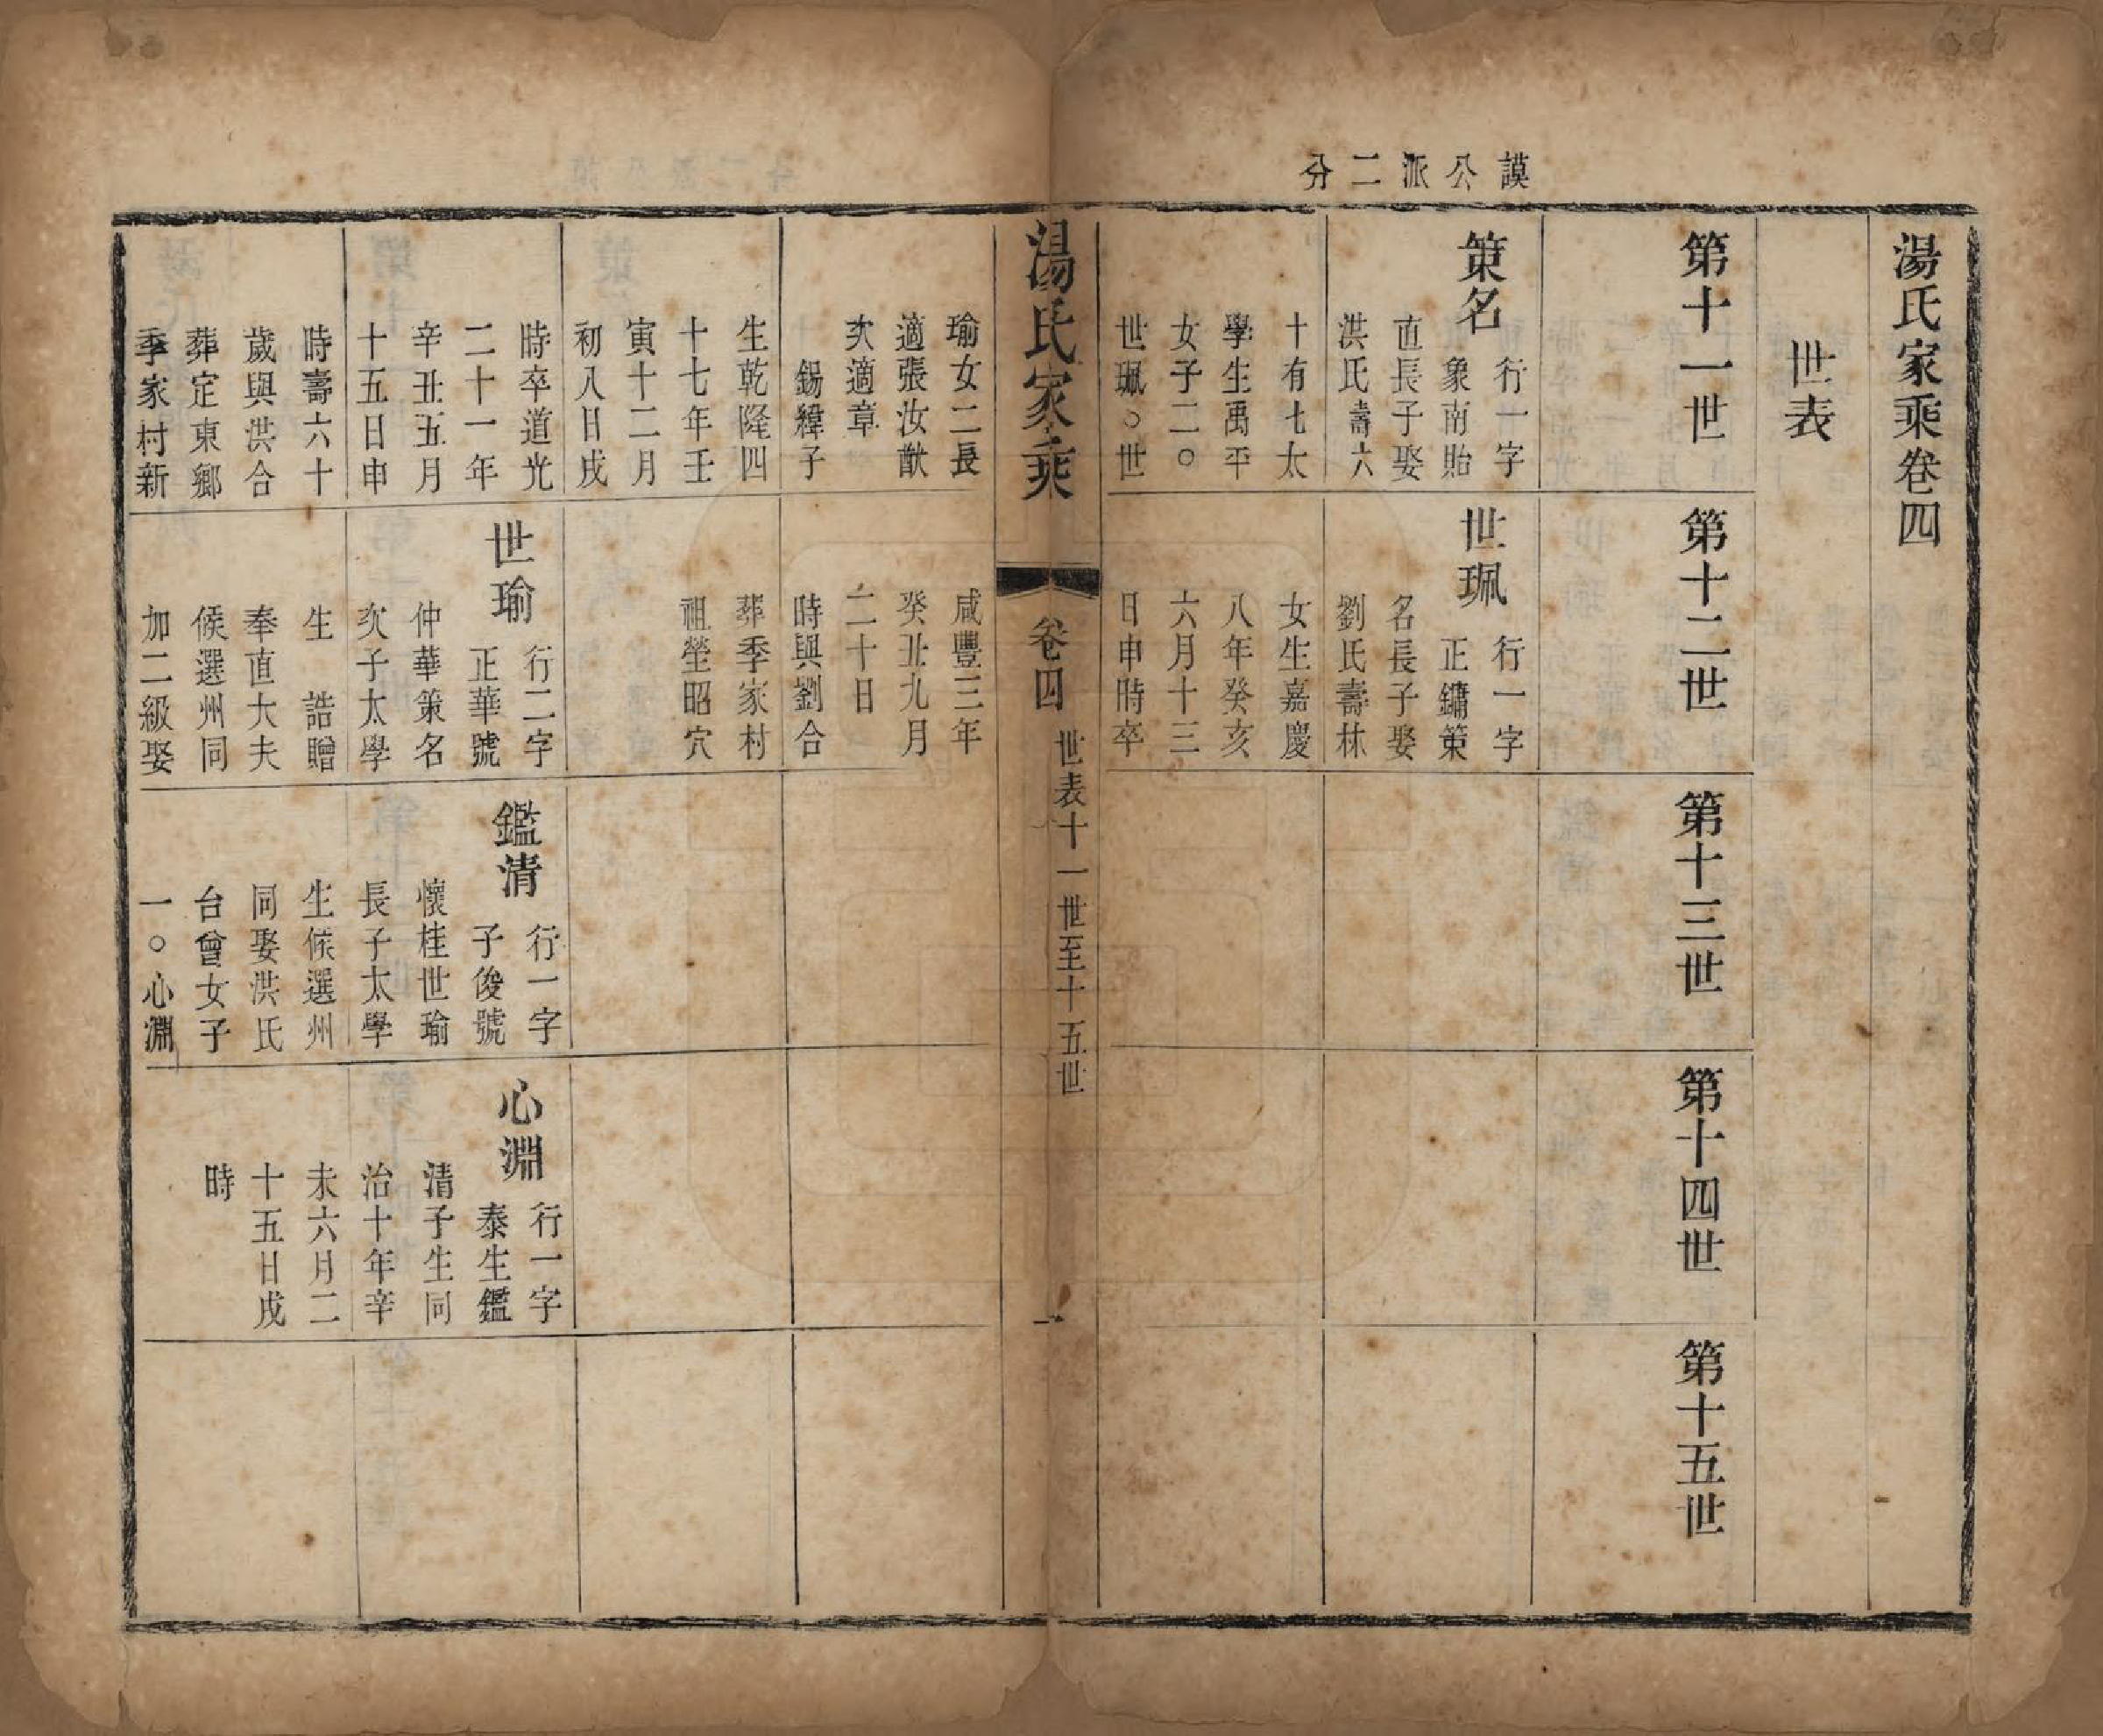 謨公派二分
湯氏家乘卷四
世表
第十一世
第十二世
第十三世
第十四世
第十五世
策名
行一字
象南貽
直長子娶
洪氏壽六
十有七太
學生禹平
女子二○
世珮○世
瑜女二長
適張汝猷
次適章
錫緯子
生乾隆四
十七年壬
寅十二月
初八日戌
時卒道光
二十一年
辛丑五月
十五日申
時壽六十
歲與洪合
葬定東鄉
季家村新
世珮
行一字
正鏞策
名長子娶
劉氏壽林
女生嘉慶
八年癸亥
六月十三
日申時卒
咸豐三年
癸丑九月
二十日
時與劉合
葬季家村
祖塋昭穴
世瑜
行二字
正華號
仲華策名
次子太學
生 誥贈
奉直大夫
候選州同
加二級娶
鑑清
行一字
子俊號
懷桂世瑜
長子太學
生候選州
同娶洪氏
台曾女子
一○心淵
心淵
行一字
泰生鑑
清子生同
治十年辛
未六月二
十五日戌
時
湯氏家乘
卷四
世表十一世至十五世
一